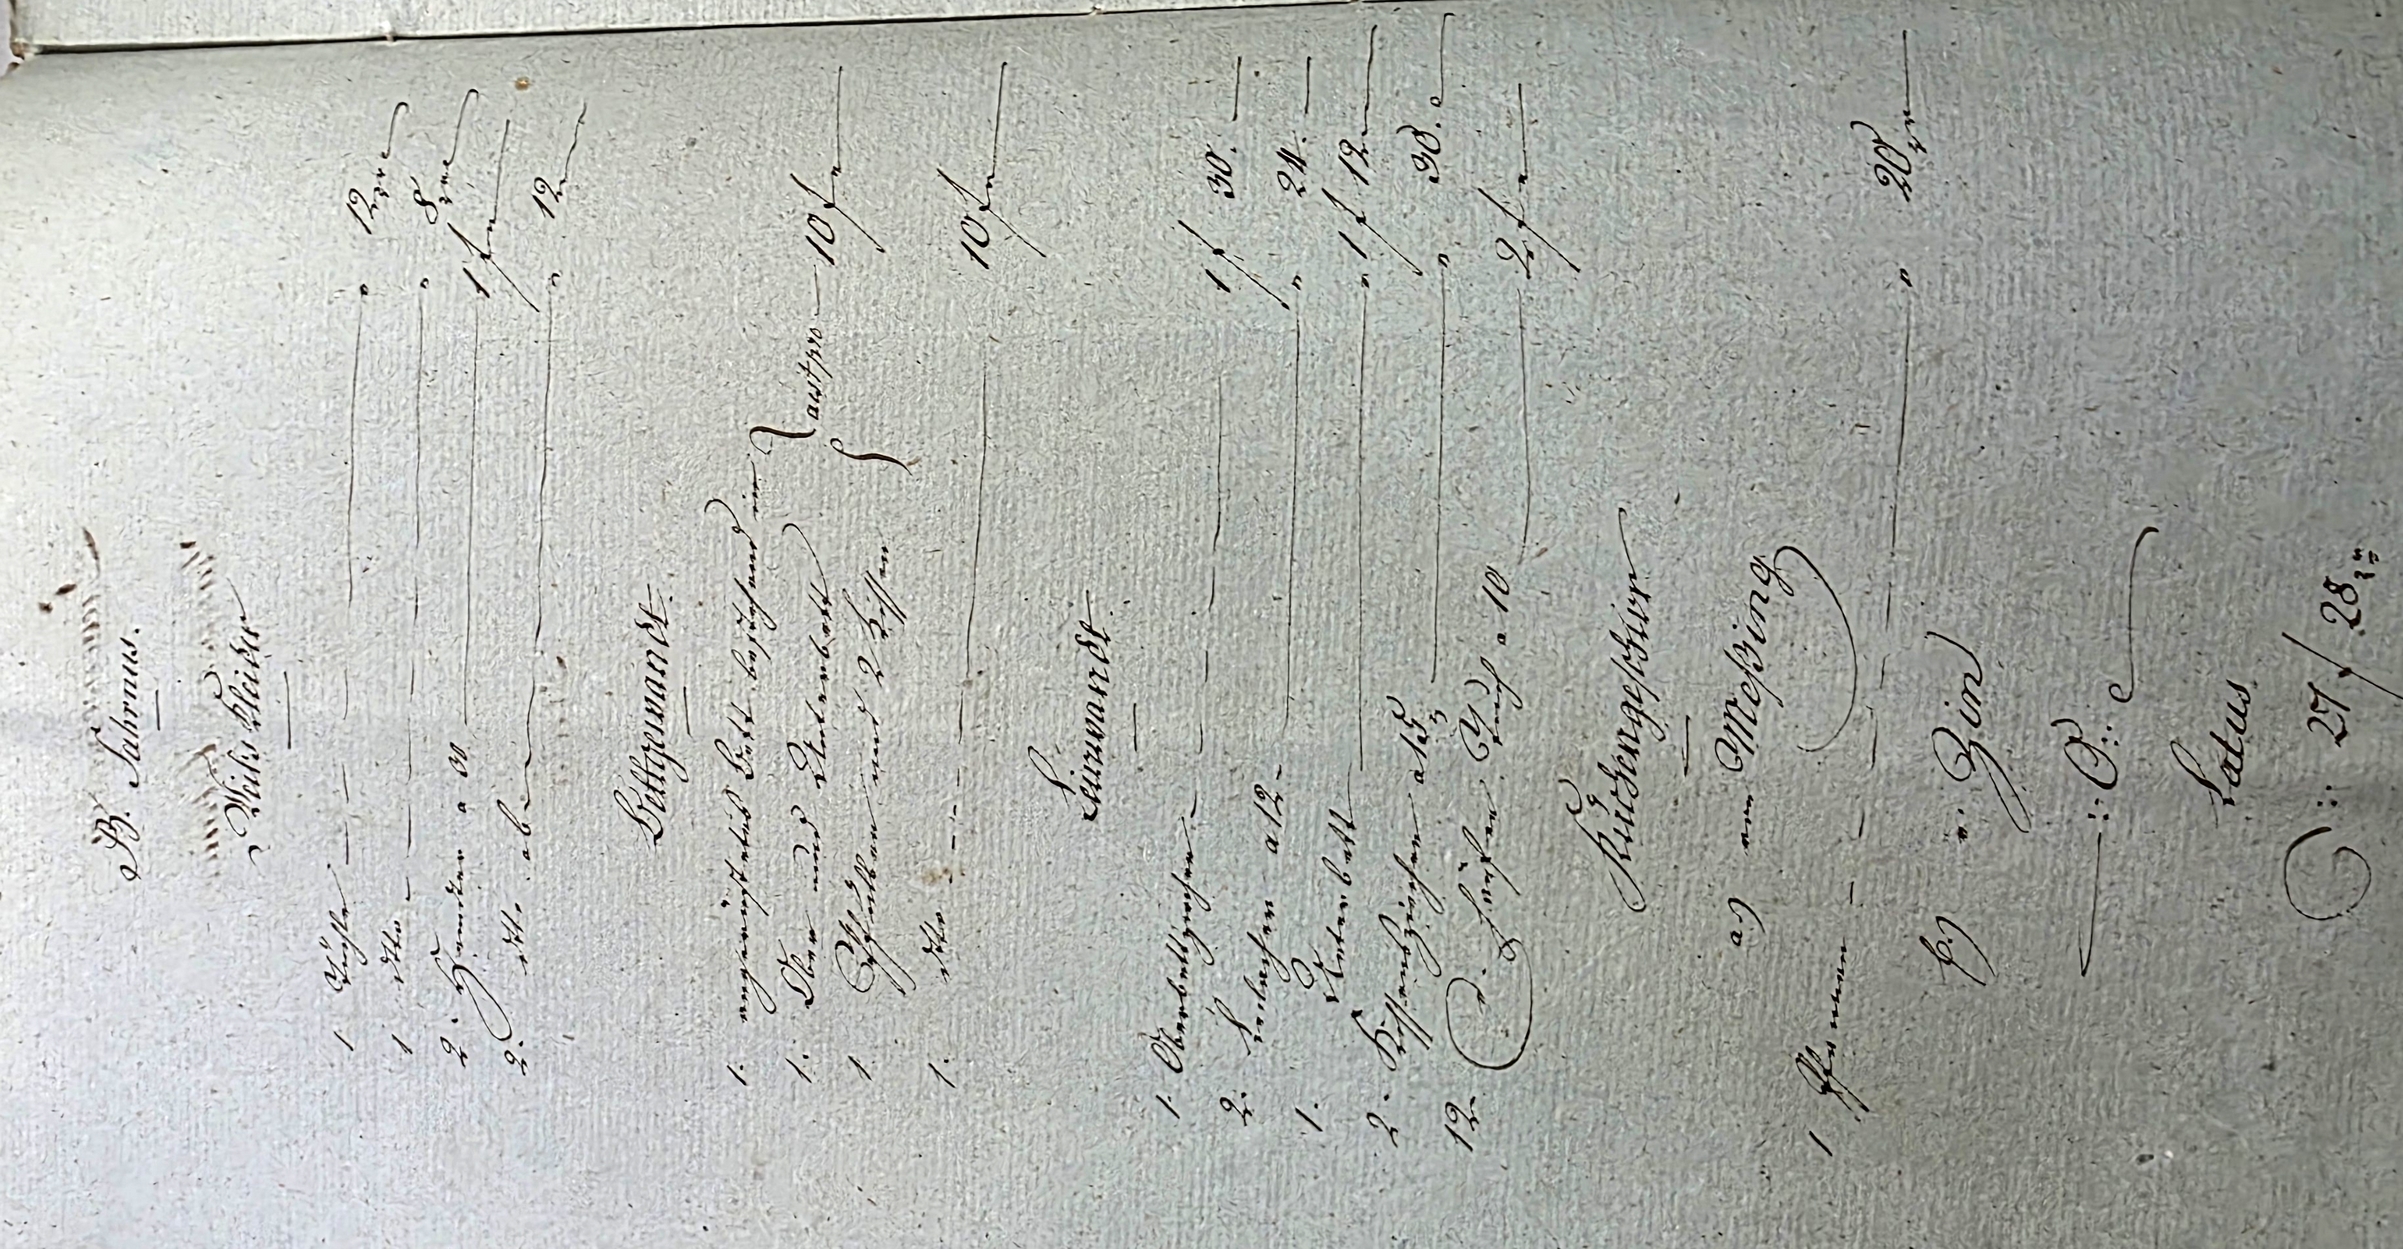 B. Fahrnus.
Weibs Kleider
1 " 12 xr
1 dto " 8 xr
2. Hemder a 30 1 f
2. dto ab " 12
Bettgewandt.
1. ausgerüstetes Bett bestehend in
1. Ober und Unterbett
1. Pfulben und 2 Kissen 10 f
1. dto 10 f
Leinwandt.
1. Oberbettziechen 1 f 30.
2. Leilacher a 12 " 24.
1. Unterbett " 1 f 12
2. Kissenziechen a 15 " 30.
12. Tuch a 10 2 f
Küchengeschirr
a.) von Meßing
1 Pfannen " 20 xr
b.) v. Zin
:: O ::
Latus
:: 27 f 28 xr